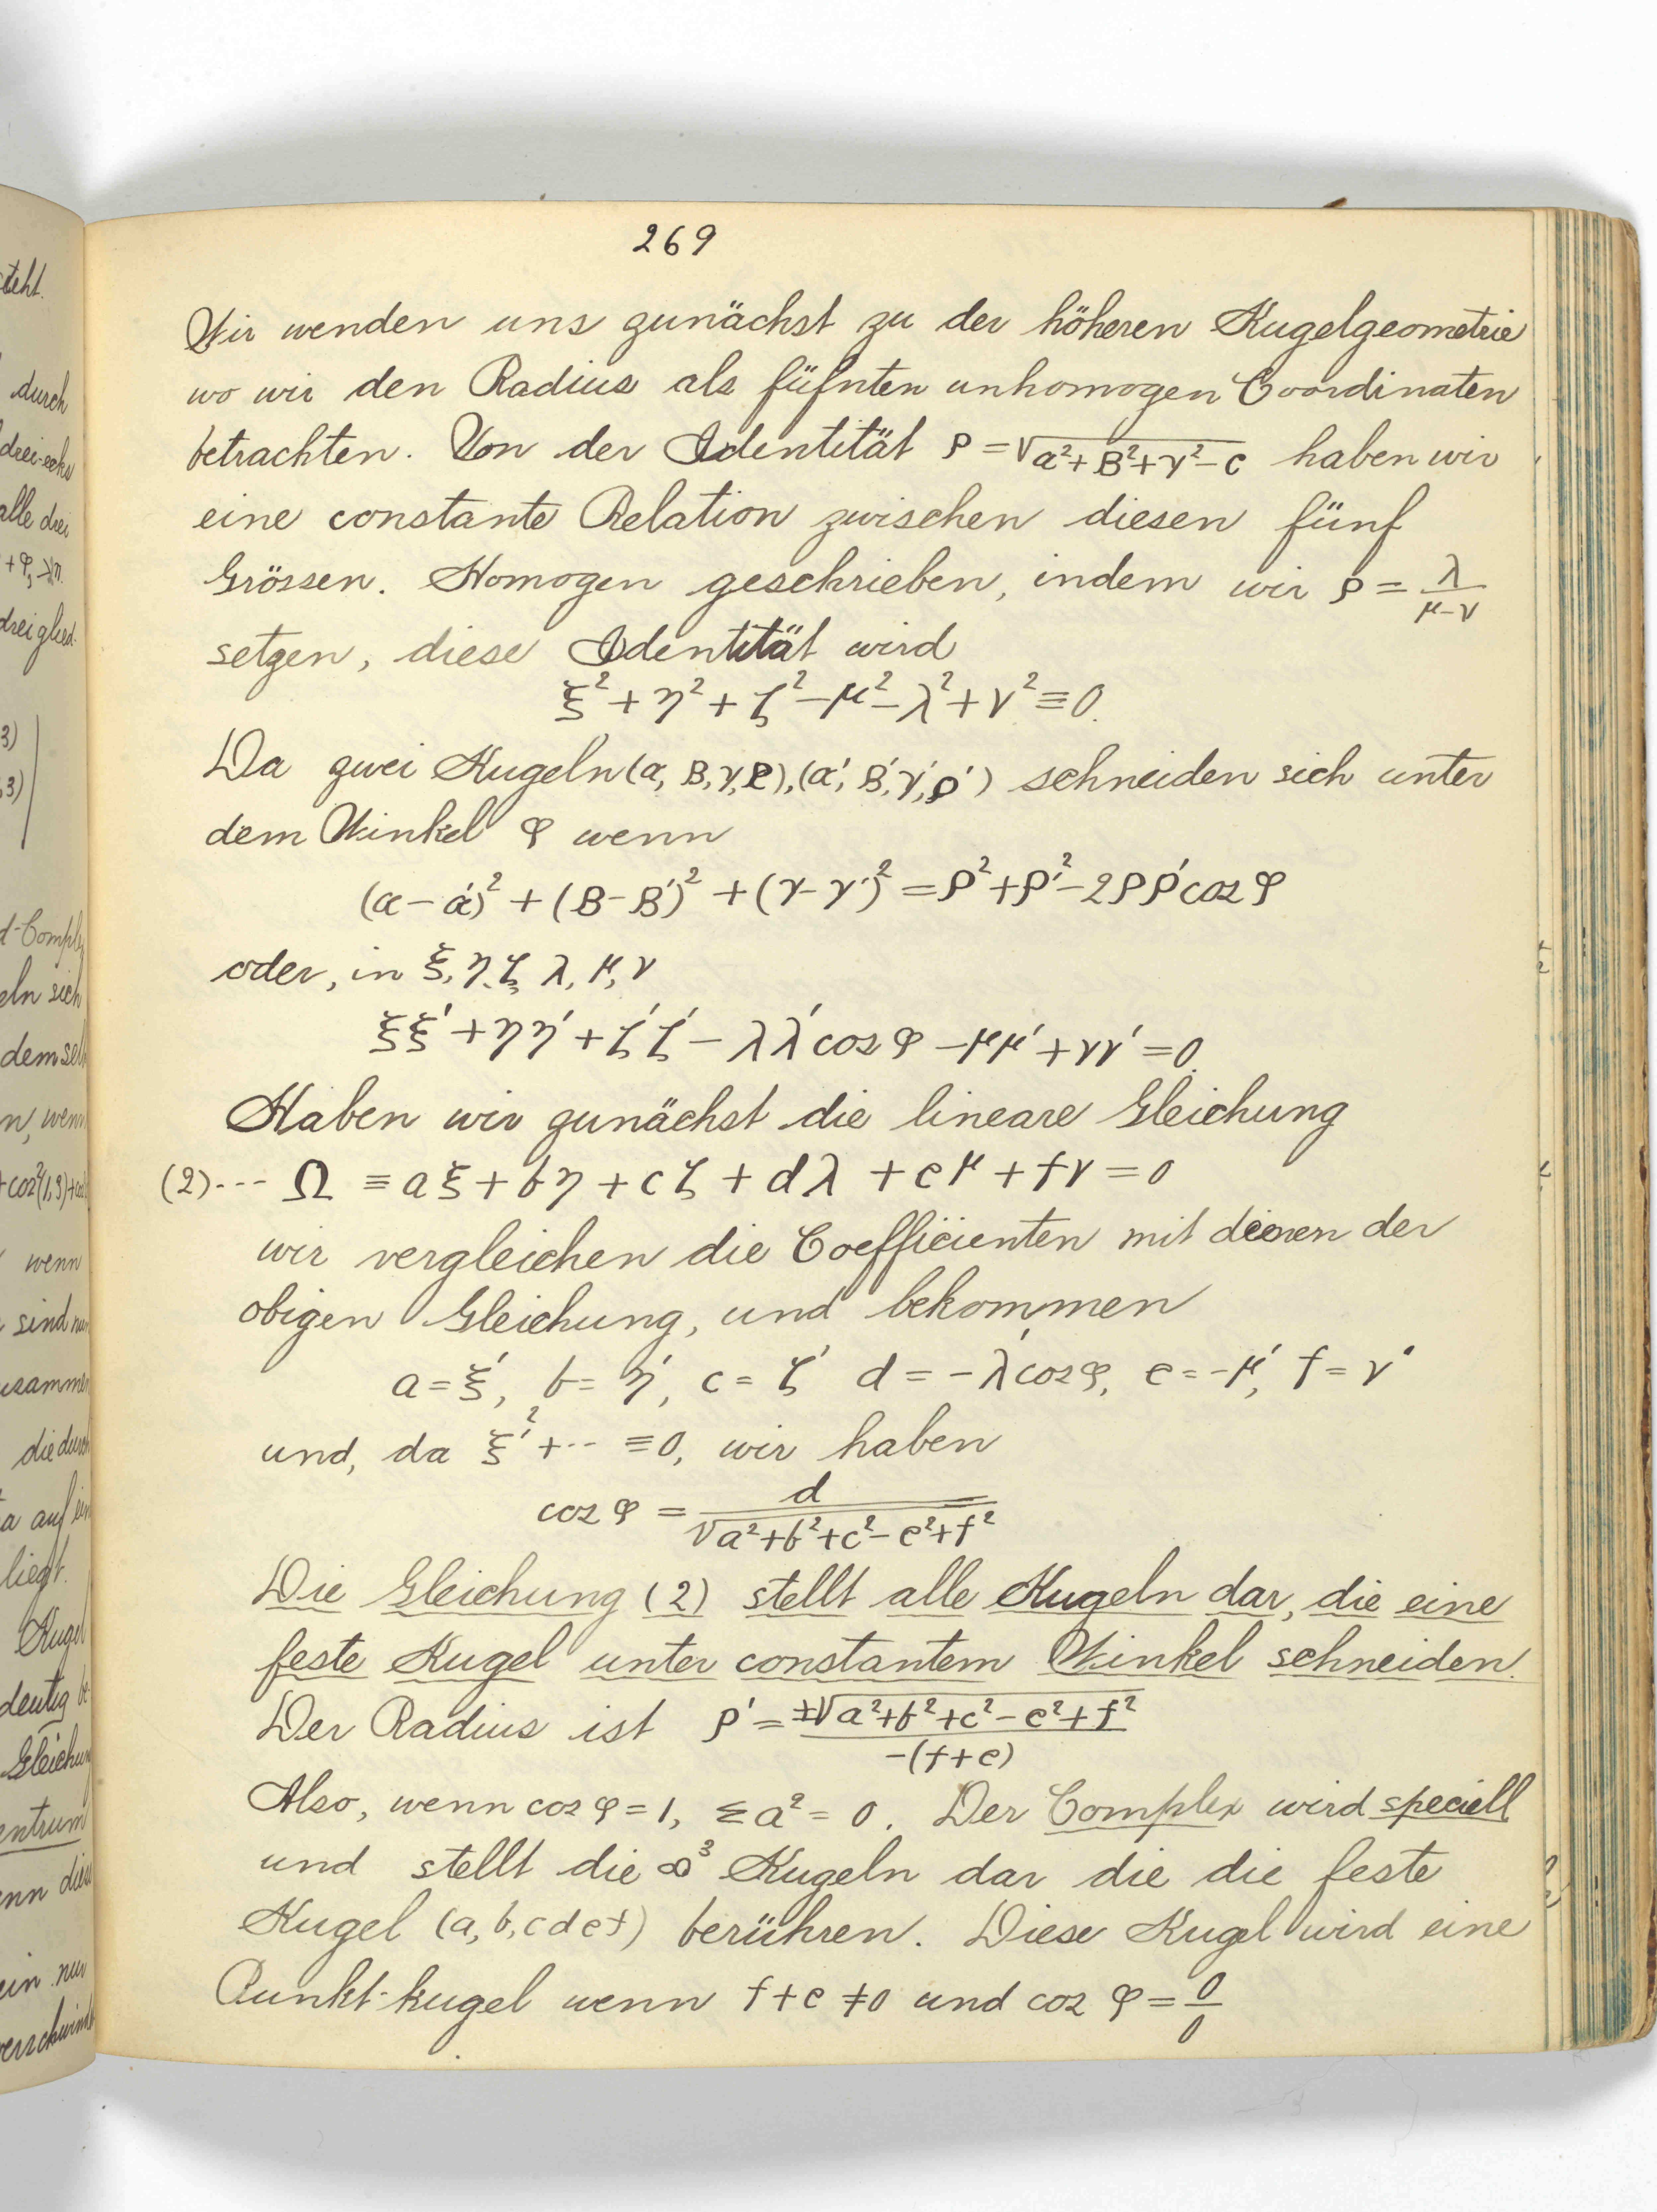 269
Wir wenden uns zunächst zu der höheren Kugelgeometrie
wo wir den Radius als füfnten unhomogen Coordinaten
betrachten. Von der Identität ρ = √(α²+β²+γ²−c) haben wir
eine constante Relation zwischen diesen fünf
Grössen. Homogen geschrieben, indem wir ρ = λ/(μ−ν)
setzen, diese Identität wird
ξ² + η² + ζ² − μ² − λ² + ν² ≡ 0.
Da zwei Kugeln (α, β, γ, ρ), (α', β', γ', ρ') schneiden sich unter
dem Winkel φ wenn
(α − α')² + (β − β')² + (γ − γ')² = ρ² + ρ'² − 2ρρ' cos φ
oder, in ξ, η, ζ, λ, μ, ν
ξξ' + ηη' + ζζ' − λλ' cos φ − μμ' + νν' = 0.
Haben wir zunächst die lineare Gleichung
(2)--- Ω ≡ aξ + bη + cζ + dλ + eμ + fν = 0
wir vergleichen die Coefficienten mit denen der
obigen Gleichung, und bekommen
a = ξ', b = η', c = ζ' d = −λ' cos φ, e = −μ', f = ν'
und, da ξ'² + ··· ≡ 0, wir haben
cos φ = d/√(a²+b²+c²−e²+f²)
Die Gleichung (2) stellt alle Kugeln dar, die eine
feste Kugel unter constantem Winkel schneiden.
Der Radius ist ρ' = ±√(a²+b²+c²−e²+f²)/−(f+e)
Also, wenn cos φ = 1, Σa² = 0. Der Complex wird speciell
und stellt die ∞³ Kugeln dar die die feste
Kugel (a, b, c d e f) berühren. Diese Kugel wird eine
Punkt-kugel wenn f + e ≠ 0 und cos φ = 0/0
steht.
durch
drei-ecks
alle drei
dreiglied-
3)
,3)
d-Complex
eln sich
dem sel
n, wenn
wenn
sind nur
usammen
die durch
a auf ein
liegt.
Kugel
deutig be-
Gleichun
entrum
nn dies
ein nur
verschwind